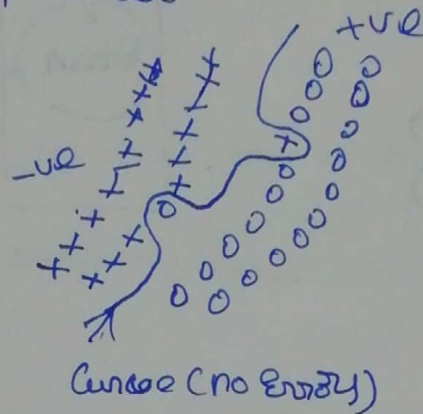 +ve
-ve
Curve (no Errors)